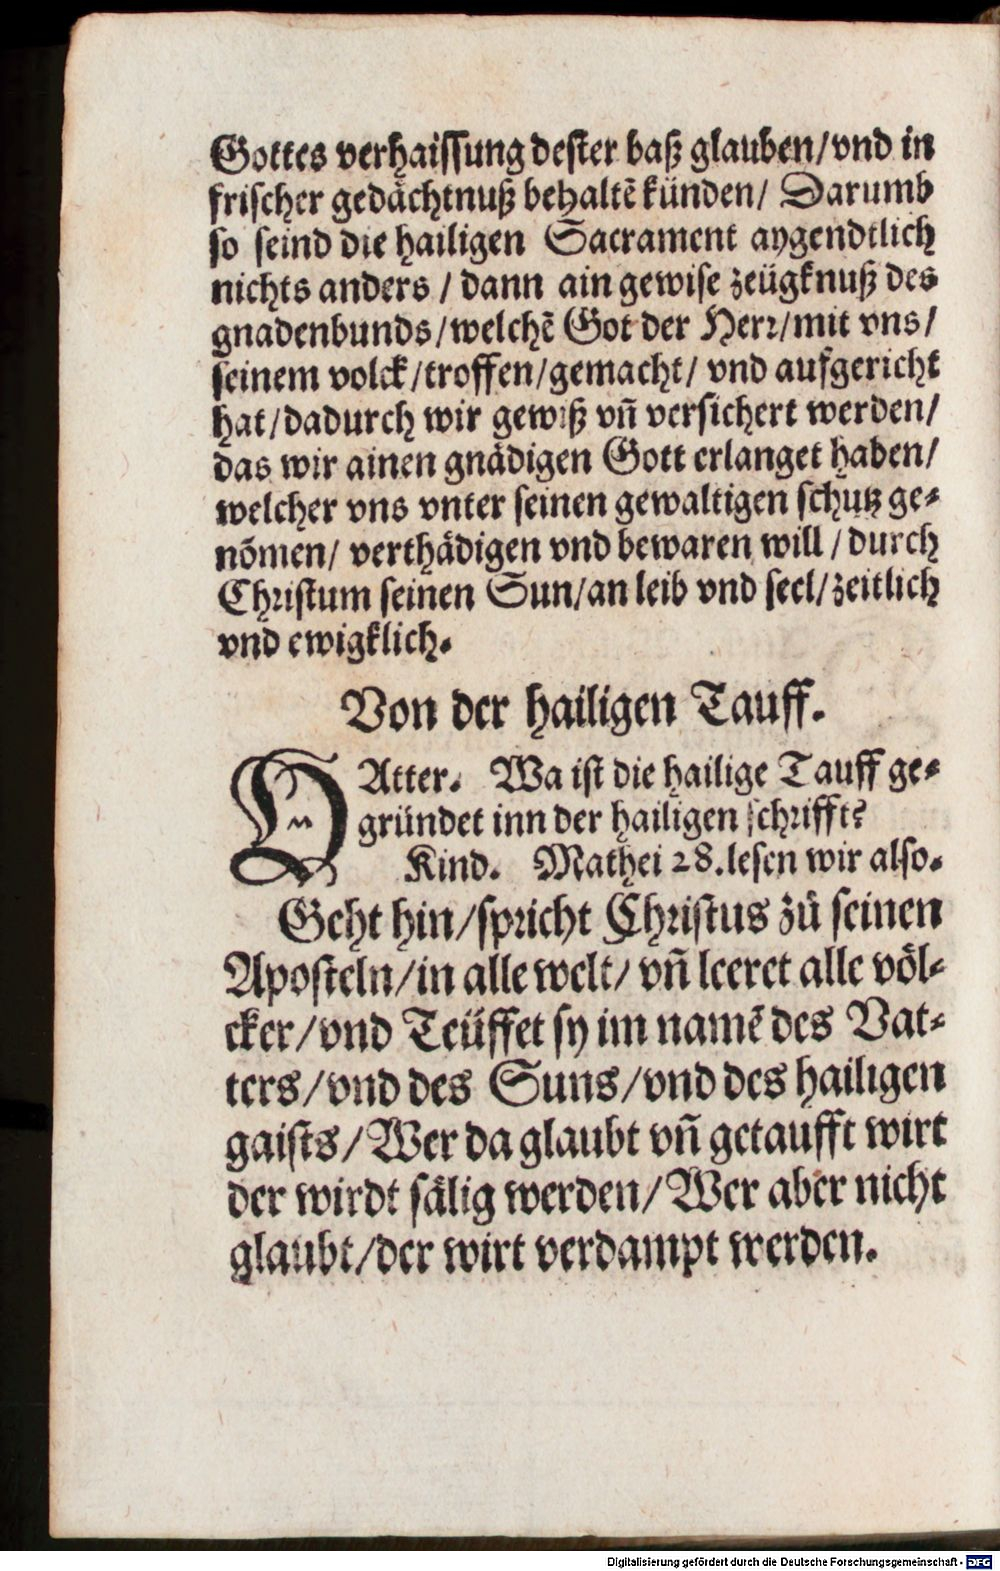 Gottes verhaissung dester baß glauben/vnd in
frischer gedächtnuß behaltẽ künden/ Darumb
so seind die hailigen Sacrament aygendtlich
nichts anders / dann ain gewise zeügknuß des
gnadenbunds/welchẽ Got der Herr/mit vns/
seinem volck/troffen/gemacht/ vnd aufgericht
hat/dadurch wir gewiß vñ versichert werden/
das wir ainen gnädigen Gott erlanget haben/
welcher vns vnter seinen gewaltigen schutz ge-
nõmen/ verthädigen vnd bewaren will / durch
Christum seinen Sun/an leib vnd seel/zeitlich
vnd ewigklich.
Von der hailigen Tauff.
VAtter. Wa ist die hailige Tauff ge-
gründet inn der hailigen schrifft?
Kind. Mathei 28. lesen wir also.
Geht hin/spricht Christus zů seinen
Aposteln/in alle welt/ vñ leeret alle völ-
cker/vnd Teüffet sy im namẽ des Vat-
ters/vnd des Suns/vnd des hailigen
gaists/Wer da glaubt vñ getaufft wirt
der wirdt sälig werden/Wer aber nicht
glaubt/der wirt verdampt werden.
Digitalisierung gefördert durch die Deutsche Forschungsgemeinschaft - DFG